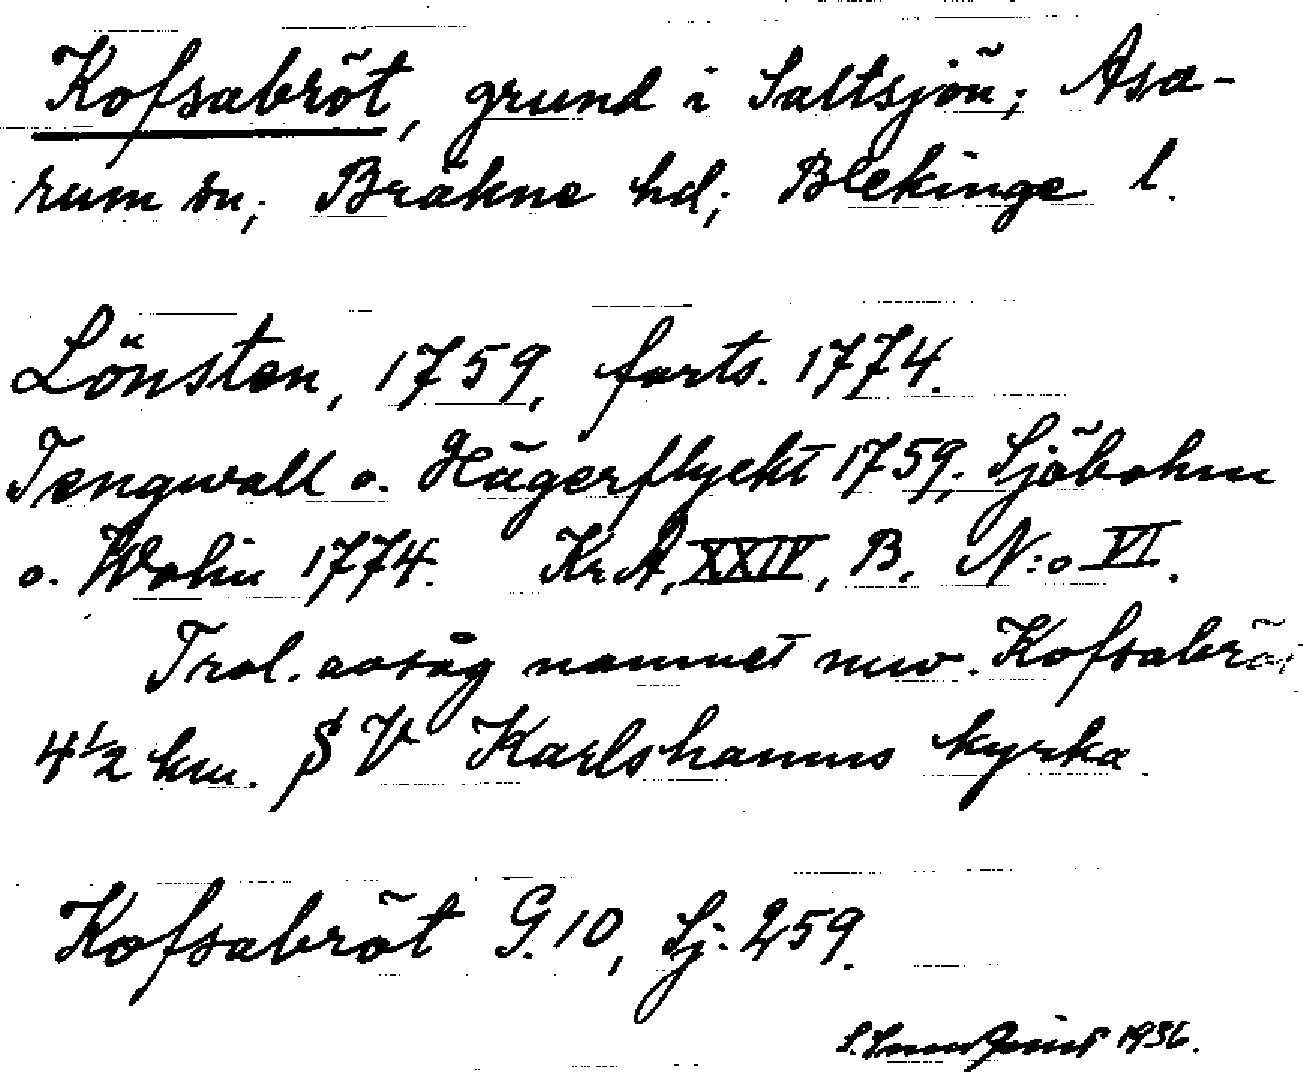 Kofsabröt, grund i Saltsjön; Asa-
rum sn; Bräkne hd; Blekinge l.
Lönsten, 1759, forts. 1774.
Tengwall o. Hägerflycht 1759; Sjöbohm
o. Wahin 1774. Kr. A, XXIV, B. N:o VI.
Trol. avsåg namnet nuv. Kofsabröt
4 1/2 km. S V Karlshamns kyrka
Kofsabröt G. 10, Sj. 259.
1936.